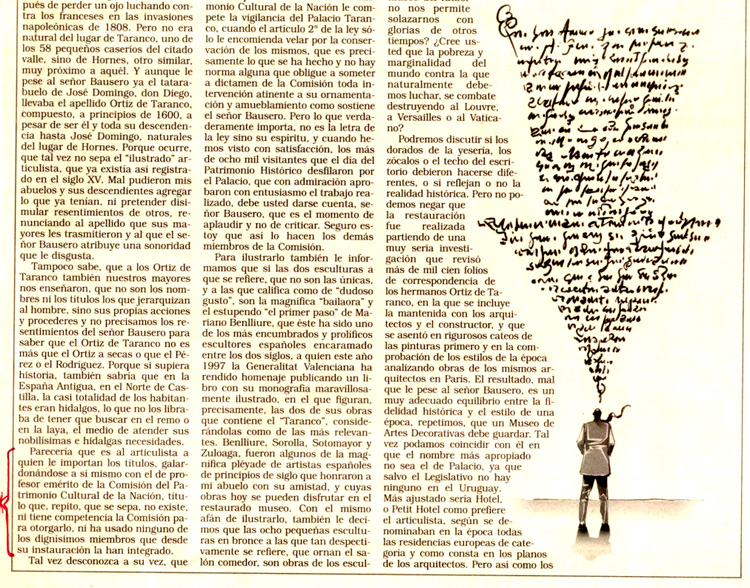 pués de perder un ojo luchando con-
tra los franceses en las invasiones
napoleónicas de 1808. Pero no era
natural del lugar de Taranco, uno de
los 58 pequeños caseríos del citado
valle, sino de Hornes, otro similar,
muy próximo a aquél. Y aunque le
pese al señor Bausero ya el tatara-
buelo de José Domingo, don Diego,
llevaba el apellido Ortiz de Taranco,
compuesto, a principios de 1600, a
pesar de ser él y toda su descenden-
cia hasta José Domingo, naturales
del lugar de Hornes. Porque ocurre,
que tal vez no sepa el "ilustrado" ar-
ticulista, que ya existía así registra-
do en el siglo XV. Mal pudieron mis
abuelos y sus descendientes agregar
lo que ya tenían, ni pretender disi-
mular resentimientos de otros, re-
nunciando al apellido que sus ma-
yores les trasmitieron y al que el se-
ñor Bausero atribuye una sonoridad
que le disgusta.
Tampoco sabe, que a los Ortiz de
Taranco también nuestros mayores
nos enseñaron, que no son los nom-
bres ni los títulos los que jerarquizan
al hombre, sino sus propias acciones
y procederes y no precisamos los re-
sentimientos del señor Bausero para
saber que el Ortiz de Taranco no es
más que el Ortiz a secas o que el Pé-
rez o el Rodríguez. Porque si supiera
historia, también sabría que en la
España Antigua, en el Norte de Cas-
tilla, la casi totalidad de los habitan-
tes eran hidalgos, lo que no los libra-
ba de tener que buscar en el remo o
en la laya, el medio de atender sus
nobilísimas e hidalgas necesidades.
Parecería que es al articulista a
quien le importan los títulos, galar-
donándose a sí mismo con el de pro-
fesor emérito de la Comisión del Pa-
trimonio Cultural de la Nación, títu-
lo que, repito, que se sepa, no existe,
ni tiene competencia la Comisión pa-
ra otorgarlo, ni ha usado ninguno de
los dignísimos miembros que desde
su instauración la han integrado.
Tal vez desconozca a su vez, que
monio Cultural de la Nación le com-
pete la vigilancia del Palacio Taran-
co, cuando el artículo 2º de la ley só-
lo le encomienda velar por la conser-
vación de los mismos, que es preci-
samente lo que se ha hecho y no hay
norma alguna que obligue a someter
a dictamen de la Comisión toda in-
tervención atinente a su ornamenta-
ción y amueblamiento como sostiene
el señor Bausero. Pero lo que verda-
deramente importa, no es la letra de
la ley sino su espíritu, y cuando he-
mos visto con satisfacción, los más
de ocho mil visitantes que el día del
Patrimonio Histórico desfilaron por
el Palacio, que con admiración apro-
baron con entusiasmo el trabajo rea-
lizado, debe usted darse cuenta, se-
ñor Bausero, que es el momento de
aplaudir y no de criticar. Seguro es-
toy que así lo hacen los demás
miembros de la Comisión.
Para ilustrarlo también le infor-
mamos que si las dos esculturas a
que se refiere, que no son las únicas,
y a las que califica como de "dudoso
gusto", son la magnífica "bailaora" y
el estupendo "el primer paso" de Ma-
riano Benlliure, que éste ha sido uno
de los más encumbrados y prolíficos
escultores españoles encaramado
entre los dos siglos, a quien este año
1997 la Generalitat Valenciana ha
rendido homenaje publicando un li-
bro con su monografía maravillosa-
mente ilustrado, en el que figuran,
precisamente, las dos de sus obras
que contiene el "Taranco", conside-
rándolas como de las más relevan-
tes. Benlliure, Sorolla, Sotomayor y
Zuloaga, fueron algunos de la mag-
nífica pléyade de artistas españoles
de principios de siglo que honraron a
mi abuelo con su amistad, y cuyas
obras hoy se pueden disfrutar en el
restaurado museo. Con el mismo
afán de ilustrarlo, también le deci-
mos que las ocho pequeñas escultu-
ras en bronce a las que tan despecti-
vamente se refiere, que ornan el sa-
lón comedor, son obras de los escul-
no nos permite
solazarnos con
glorias de otros
tiempos? ¿Cree us-
ted que la pobreza y
marginalidad del
mundo contra la que
naturalmente debe-
mos luchar, se combate
destruyendo al Louvre,
a Versailles o al Vatica-
no?
Podremos discutir si los
dorados de la yesería, los
zócalos o el techo del escri-
torio debieron hacerse dife-
rentes, o si reflejan o no la
realidad histórica. Pero no po-
demos negar que
la restauración
fue realizada
partiendo de una
muy seria investi-
gación que revisó
más de mil cien folios
de correspondencia de
los hermanos Ortiz de Ta-
ranco, en la que se incluye
la mantenida con los arqui-
tectos y el constructor, y que
se asentó en rigurosos cateos de
las pinturas primero y en la com-
probación de los estilos de la época
analizando obras de los mismos ar-
quitectos en París. El resultado, mal
que le pese al señor Bausero, es un
muy adecuado equilibrio entre la fi-
delidad histórica y el estilo de una
época, repetimos, que un Museo de
Artes Decorativas debe guardar. Tal
vez podamos coincidir con él en
que el nombre más apropiado
no sea el de Palacio, ya que
salvo el Legislativo no hay
ninguno en el Uruguay.
Más ajustado sería Hotel,
o Petit Hotel como prefiere
el articulista, según se de-
nominaban en la época todas
las residencias europeas de cate-
goría y como consta en los planos
de los arquitectos. Pero así como los